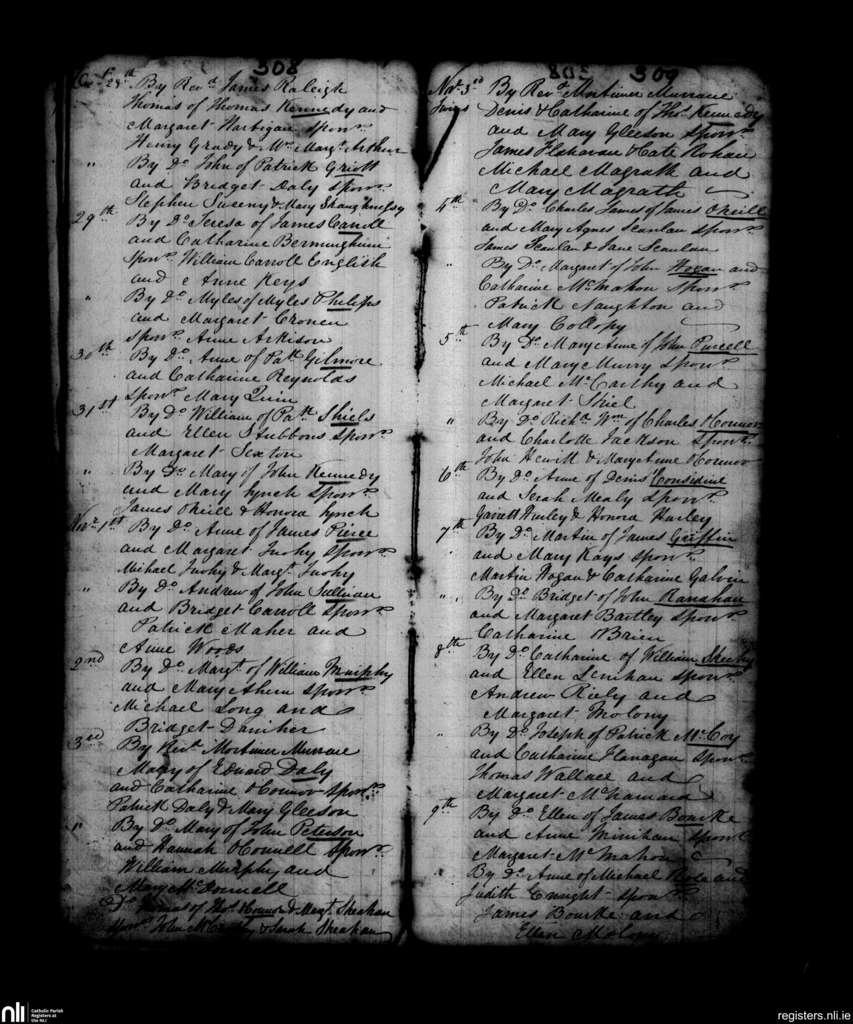 308
28th By Revd James Raleigh
Thomas of Thomas Kennedy and
Margaret Hartigan sponrs
Henry Grady & Mrs Margt Arthur
" By Do John of Patrick Griott
and Bridget Daly sponrs
Stephen Sweeny & Mary
29th By Do Teresa of James Carroll
and Catharine Bermingham
sponrs William Carroll English
and Anne Keys
" By Do Myles of Myles Philips
and Margaret Cronen
sponrs Anne Arkison
30th By Do Anne of Patk Gilmore
and Catharine Reynolds
sponrs Mary Quin
31st By Do William of Patk Shiels
and Ellen Stubbons sponrs
Margaret Sexton
" By Do Mary of John Kennedy
and Mary Lynch sponrs
James Oneill & Honora Lynch
Novr 1st By Do Anne of James Pierce
and Margaret Tuohy sponrs
Mihael Tuohy & Margt Tuohy
" By Do Andrew of John Sullivan
and Bridget Carroll sponrs
Patrick Maher and
Anne Woods
2nd By Do Margt of William Murphy
and Mary Ahern sponrs
Michael Long and
Bridget Daniher
3rd By Revd Mortimer Murrane
Mary of Edward Daly
and Catharine OConnor sponrs
Patrick Daly & Mary Gleeson
By Do Mary of John Peterson
and Hannah OConnell sponrs
William Murphy and
Mary McDonnell
Do Thomas of Thos Connor & Margt Sheahan
sponrs John McCarthy & Sarah Sheahan
309
Novr 3rd By Revd Mortimer Murrane
Twins Denis & Catharine of Thos Kennedy
and Mary Gleeson sponrs
James Flahavan & Cate Rohan
Michael Magrath and
Mary Magrath
4th By Do Charles James of James ONeill
and Mary Agnes Scanlan sponrs
James Scanlan & Jane Scanlan
" By Do Margaret of John Hogan and
Catharine McMahon sponrs
Patrick Naughton and
Mary Collopy
5th By Do Mary Anne of John Purcell
and Mary Murry sponrs
Michael McCarthy and
Margaret Shiel
" By Do Richd Wm of Charles OConnor
and Charlotte Jackson sponrs
John Hewitt & Mary Anne OConnor
6th By Do Anne of Denis Considine
and Sarah Mealy sponrs
Garrett Hurley & Honora Hurley
7th By Do Martin of James Griffin
and Mary Kays sponrs
Martin Hogan & Catharine Galvin
" By Do Bridget of John Ranahan
and Margaret Bartley sponrs
Catharine OBrien
8th By Do Catharine of William Sheehy
and Ellen Lenihan sponrs
Andrew Riely and
Margaret Molony
" By Do Joseph of Patrick McCoy
and Catharine Flanagan sponrs
Thomas Wallace and
Margaret McNamara
9th By Do Ellen of James Bourke
and Anne Minihan sponrs
Margaret McMahon
By Do Anne of Michael and
Judith Enright sponrs
James Bourke and
Ellen Molony
nli Catholic Parish
Registers at
the NLI
registers.nli.ie